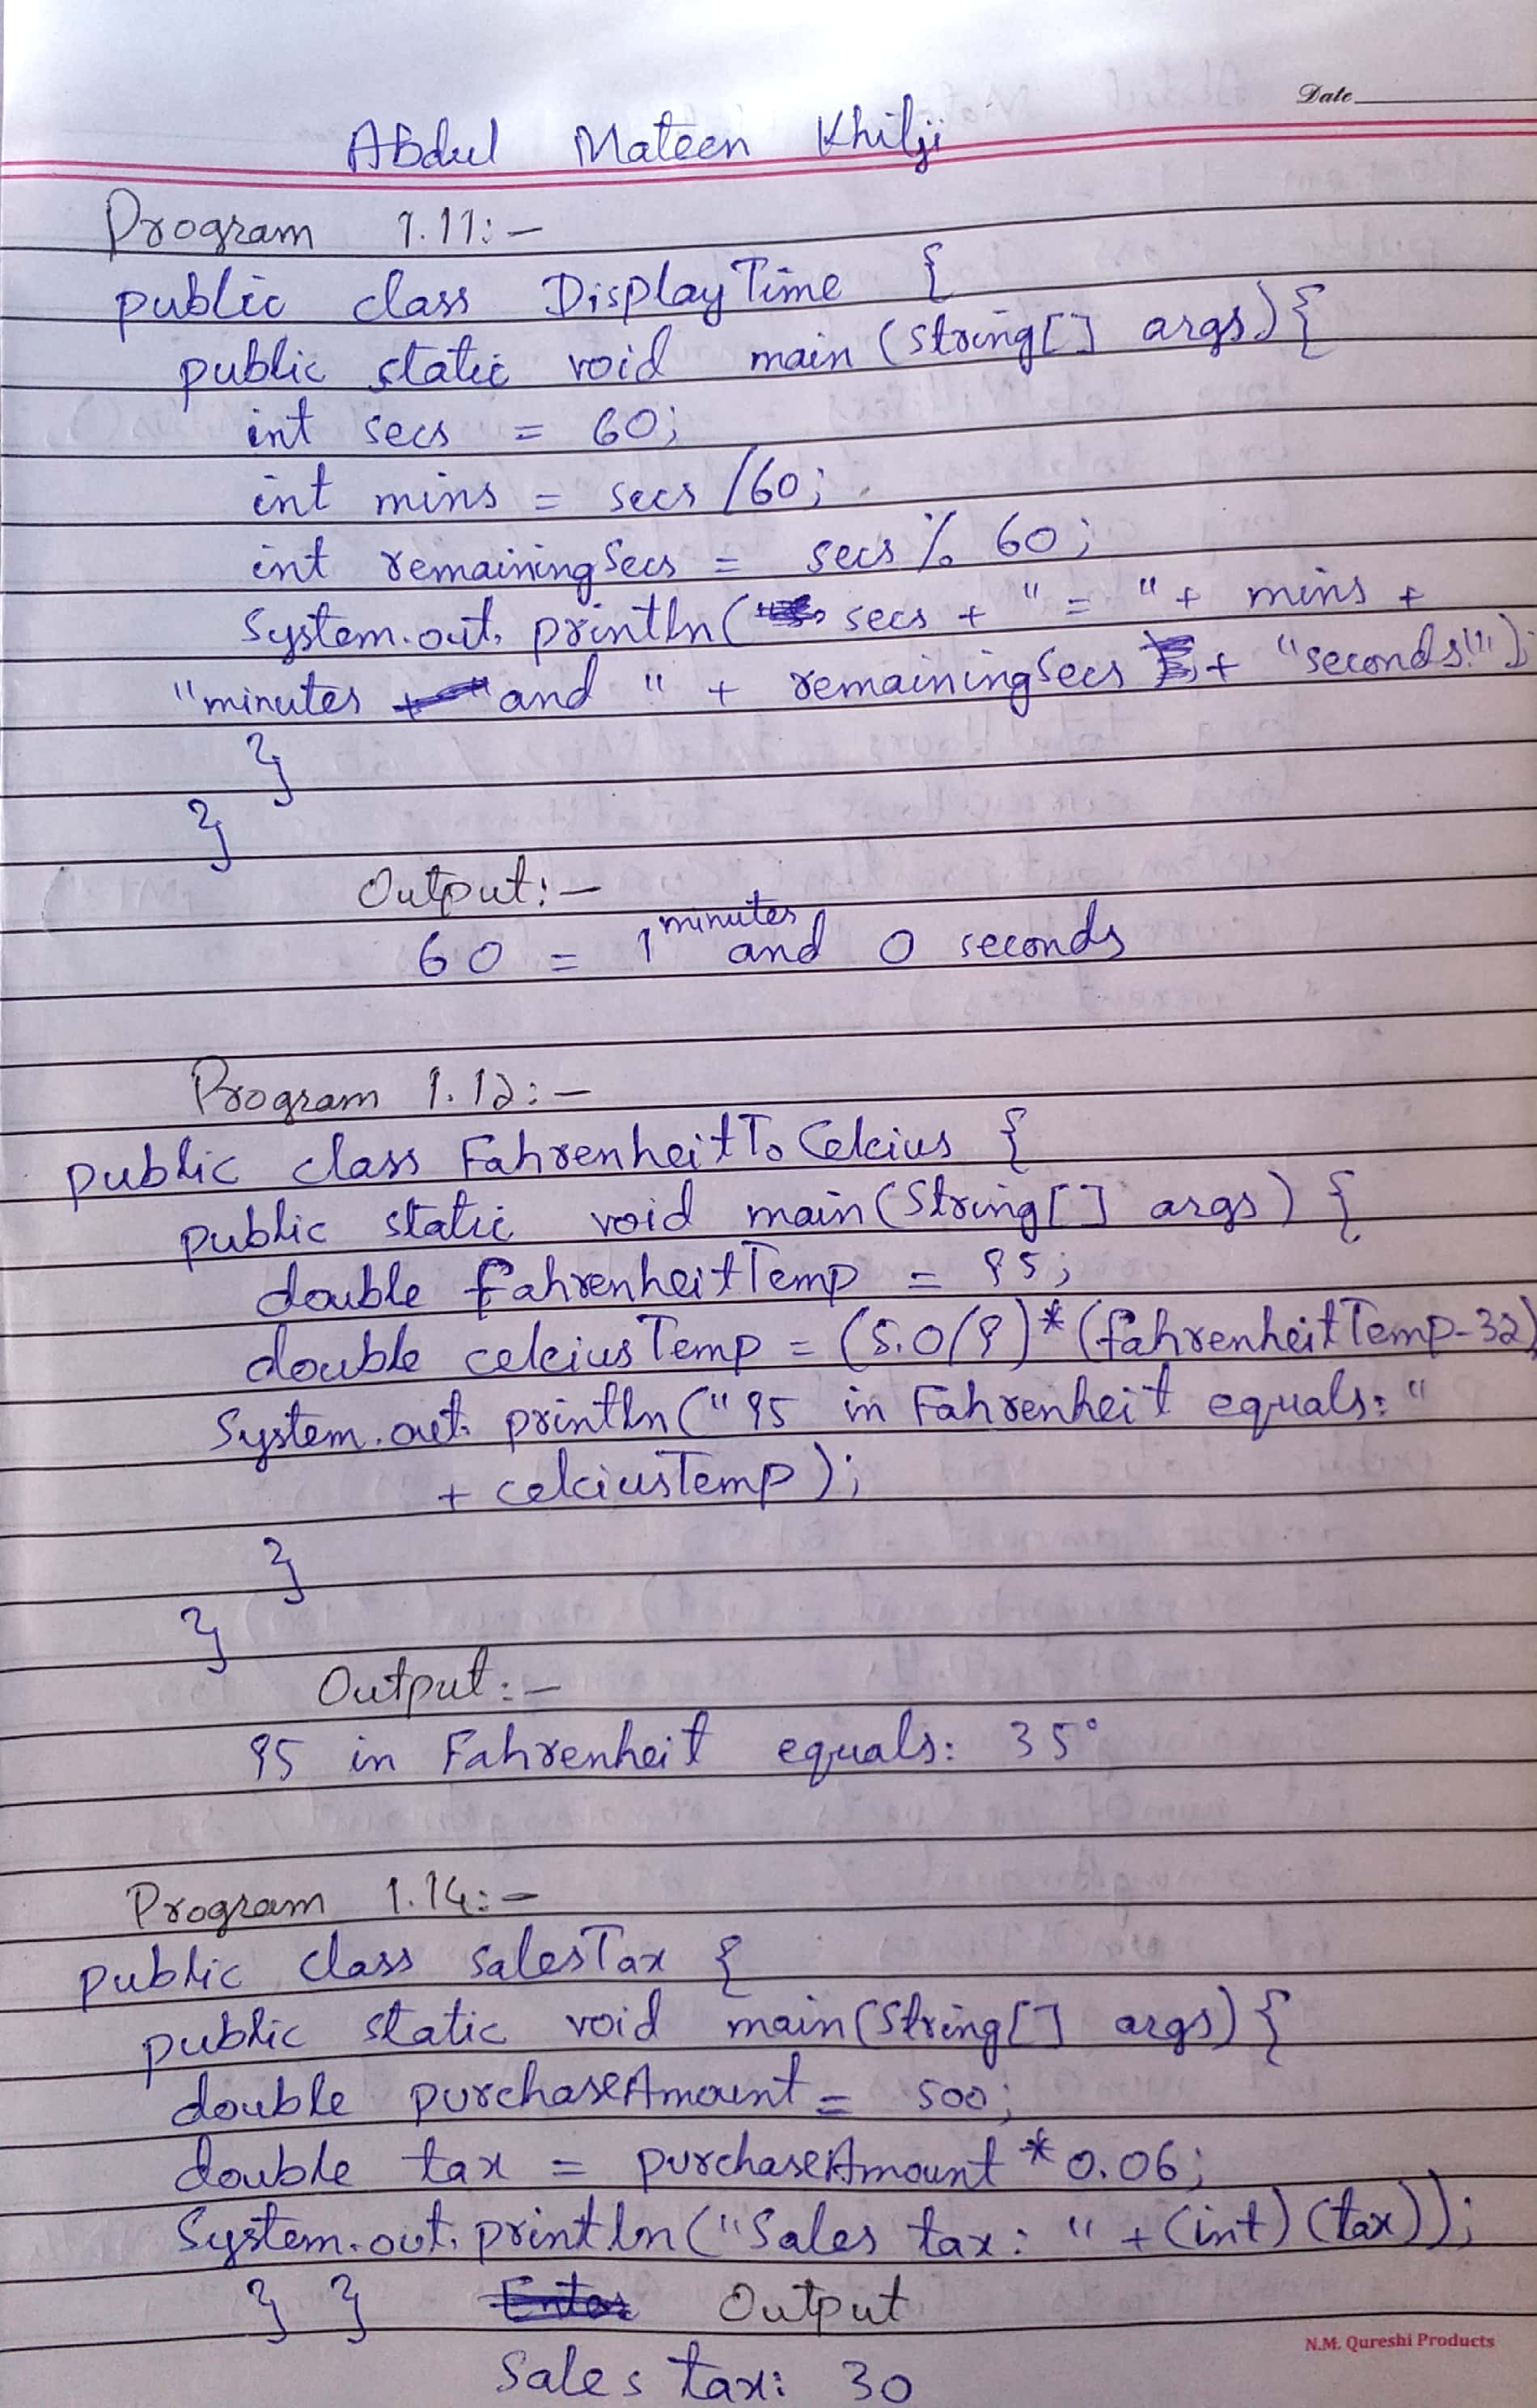 Date
Abdul Mateen Khilji
Program 1.11:-
public class DisplayTime {
public static void main (String[] args) {
int secs = 60;
int mins = secs /60;
int remainingSecs = secs % 60;
System.out.println( secs + " = " + mins +
"minutes and " + remainingSecs + "seconds!");
}
}
Output:-
60 = 1 minutes and 0 seconds
Program 1.12:-
public class FahrenheitToCelcius {
public static void main (String[] args) {
double fahrenheitTemp = 95;
double celciusTemp = (5.0/9)*(fahrenheitTemp-32);
System.out.println("95 in Fahrenheit equals: "
+ celciusTemp);
}
}
Output:-
95 in Fahrenheit equals: 35°
Program 1.14:-
public class SalesTax {
public static void main(String[] args) {
double purchaseAmount = 500;
double tax = purchaseAmount * 0.06;
System.out.println("Sales tax: " + (int) (tax));
} } Output
Sales tax: 30
N.M. Qureshi Products